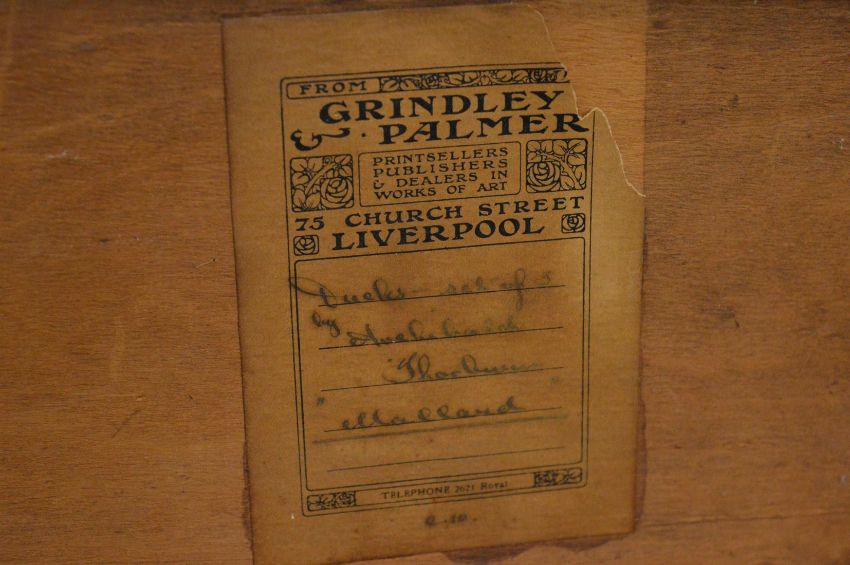 FROM
GRINDLEY
& PALMER
PRINTSELLERS
PUBLISHERS
& DEALERS IN
WORKS OF ART
75 CHURCH STREET
LIVERPOOL
Ducks - set of 5
by Archibald
Thorburn
"Mallard"
TELEPHONE 2621 Royal